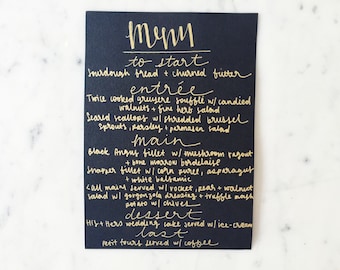 menu
to start
sourdough bread + churned butter
entrée
Twice cooked gruyere souffle w/ candied
walnuts + fine herb salad
Seared scallops w/ shredded brussel
sprouts, parsley + parmesan salad
main
Black Angus fillet w/ mushroom ragout
+ bone marrow bordelaise
snapper fillet w/ corn puree, asparagus
+ white balsamic
<all mains served w/ rocket, pear + walnut
salad w/ gorgonzola dressing + truffle mash
potato w/ chives
dessert
His + Hers wedding cake served w/ ice-cream
last
Petit fours served w/ coffee